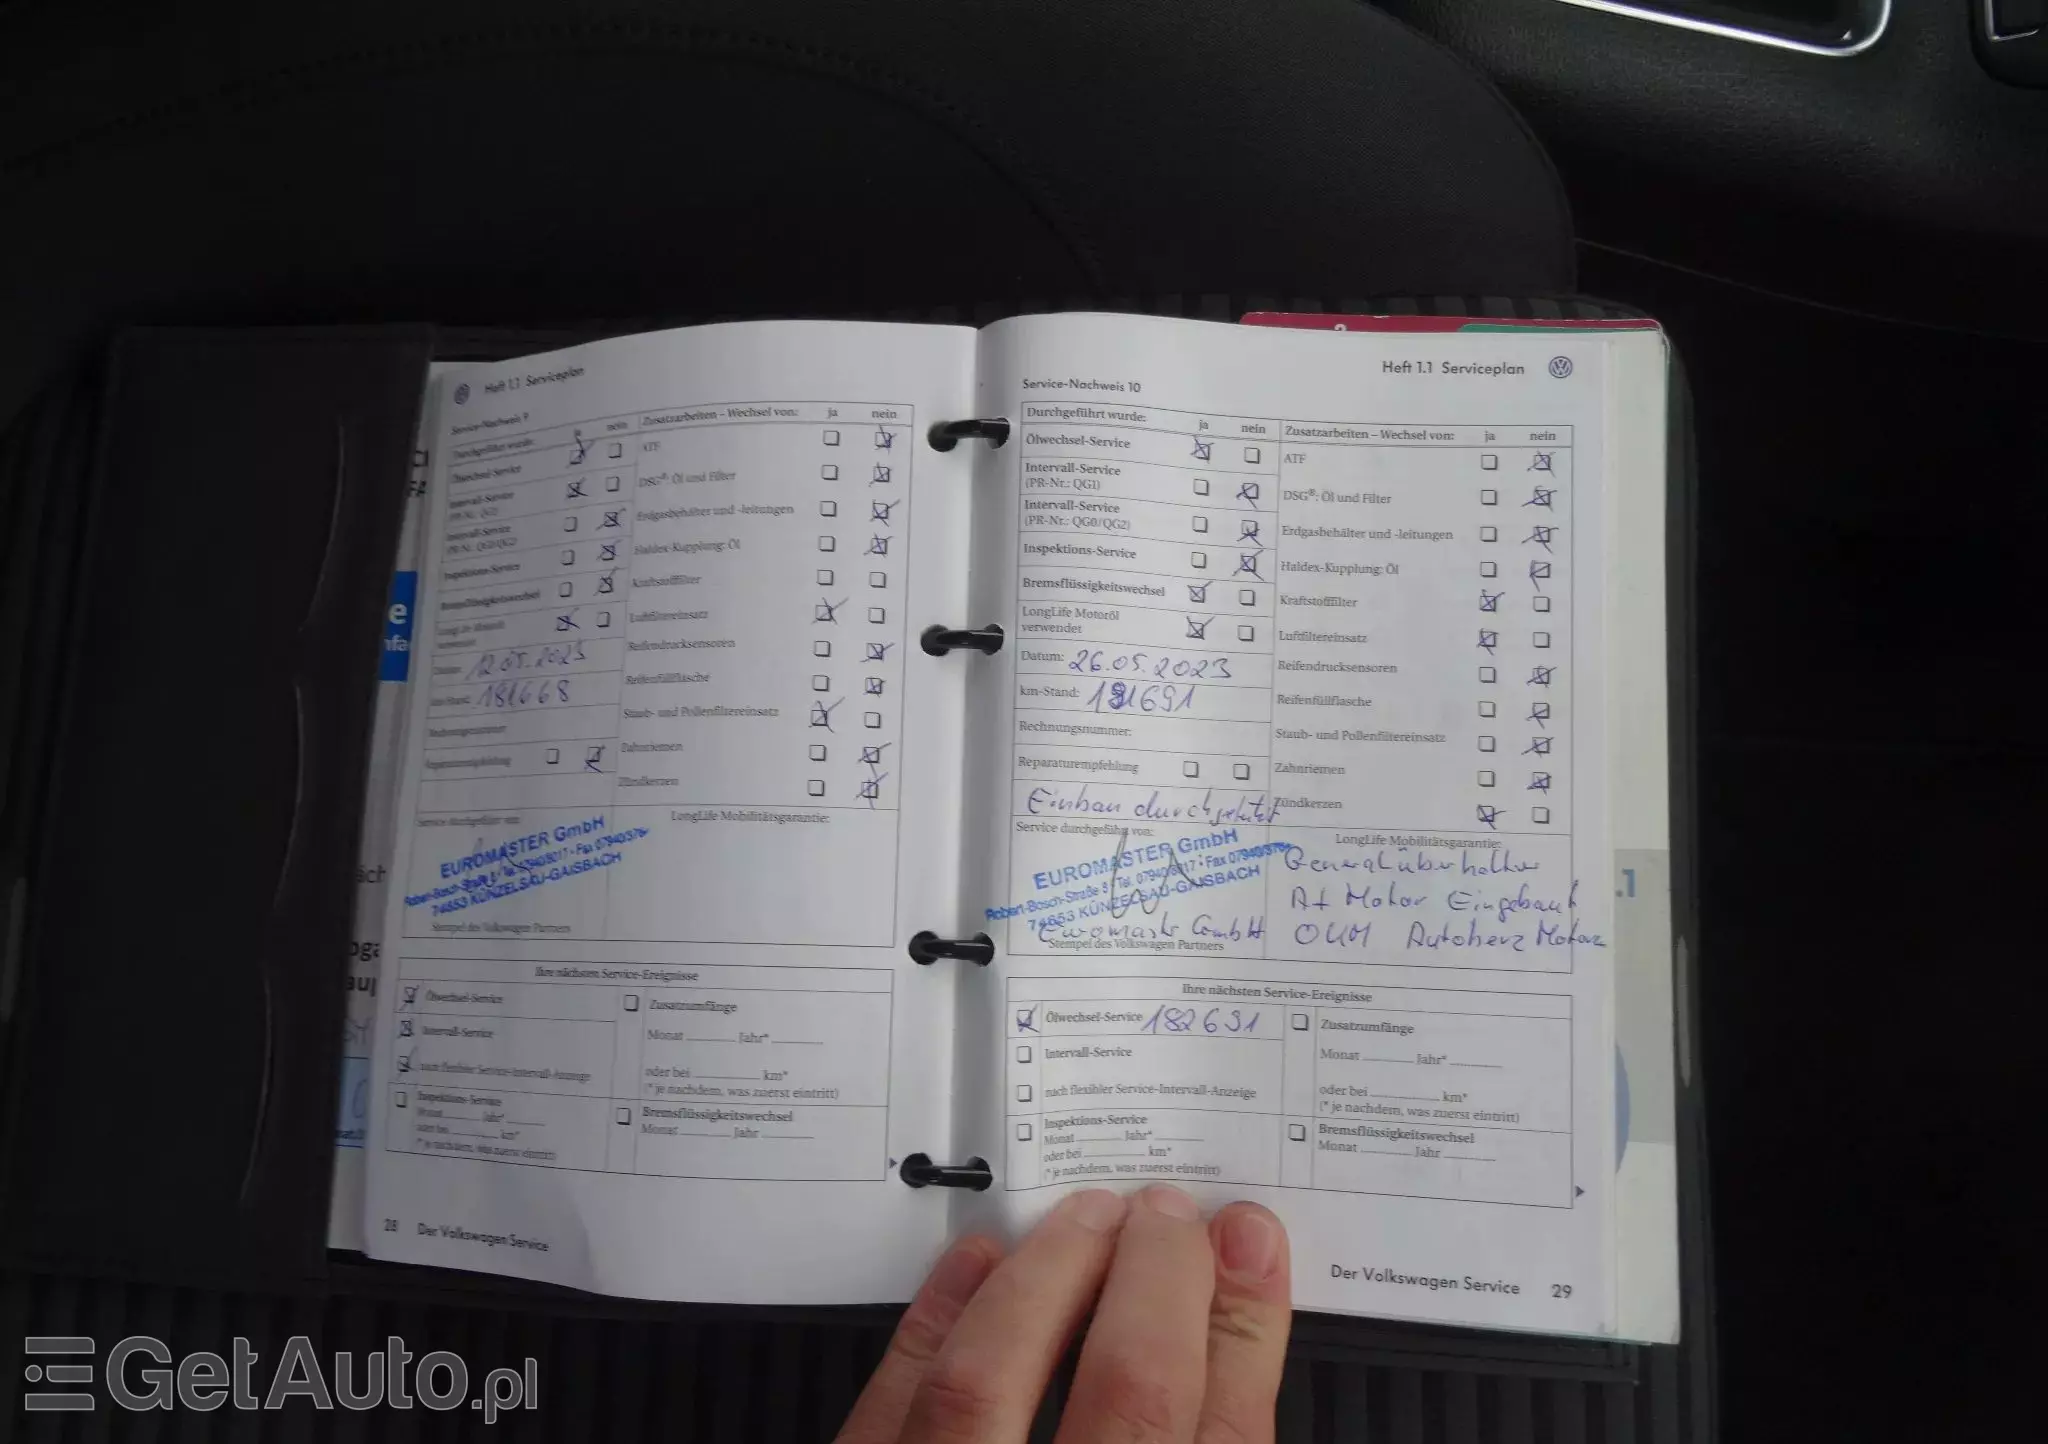 Heft 1.1 Serviceplan
Service-Nachweis 9
Durchgeführt wurde: ja nein
Ölwechsel-Service
Intervall-Service
(PR-Nr.: QG1)
Intervall-Service
(PR-Nr.: QG0/QG2)
Inspektions-Service
Bremsflüssigkeitswechsel
verwendet
Datum: 12.05.2023
km-Stand: 181668
Rechnungsnummer
Reparaturempfehlung
Zusatzarbeiten – Wechsel von: ja nein
ATF
DSG®: Öl und Filter
Erdgasbehälter und -leitungen
Haldex-Kupplung: Öl
Kraftstofffilter
Luftfiltereinsatz
Reifendrucksensoren
Reifenfüllflasche
Staub- und Pollenfiltereinsatz
Zahnriemen
Zündkerzen
Service durchgeführt von:
EUROMASTER GmbH
Robert-Bosch-Straße 8 · Tel. 07940/8017 · Fax 07940/376
74653 KÜNZELSAU-GAISBACH
Stempel des Volkswagen Partners
LongLife Mobilitätsgarantie:
Ihre nächsten Service-Ereignisse
Ölwechsel-Service
Intervall-Service
nach flexibler Service-Intervall-Anzeige
Inspektions-Service
Monat Jahr*
oder bei km*
(* je nachdem, was zuerst eintritt)
Zusatzumfänge
Monat Jahr*
oder bei km*
(* je nachdem, was zuerst eintritt)
Bremsflüssigkeitswechsel
Monat Jahr
28 Der Volkswagen Service
Heft 1.1 Serviceplan
Service-Nachweis 10
Durchgeführt wurde: ja nein
Ölwechsel-Service
Intervall-Service
(PR-Nr.: QG1)
Intervall-Service
(PR-Nr.: QG0/QG2)
Inspektions-Service
Bremsflüssigkeitswechsel
LongLife Motoröl
verwendet
Datum: 26.05.2023
km-Stand: 181691
Rechnungsnummer:
Reparaturempfehlung
Einbau durchgeführt
Zusatzarbeiten – Wechsel von: ja nein
ATF
DSG®: Öl und Filter
Erdgasbehälter und -leitungen
Haldex-Kupplung: Öl
Kraftstofffilter
Luftfiltereinsatz
Reifendrucksensoren
Reifenfüllflasche
Staub- und Pollenfiltereinsatz
Zahnriemen
Zündkerzen
Service durchgeführt von:
EUROMASTER GmbH
Robert-Bosch-Straße 8 · Tel. 07940/8017 · Fax 07940/376
74653 KÜNZELSAU-GAISBACH
Euromaster GmbH
Stempel des Volkswagen Partners
LongLife Mobilitätsgarantie:
Generalüberholter
AT Motor Eingebaut
OKM Autoherz Motorz
Ihre nächsten Service-Ereignisse
Ölwechsel-Service 182691
Intervall-Service
nach flexibler Service-Intervall-Anzeige
Inspektions-Service
Monat Jahr*
oder bei km*
(* je nachdem, was zuerst eintritt)
Zusatzumfänge
Monat Jahr*
oder bei km*
(* je nachdem, was zuerst eintritt)
Bremsflüssigkeitswechsel
Monat Jahr
Der Volkswagen Service 29
GetAuto.pl